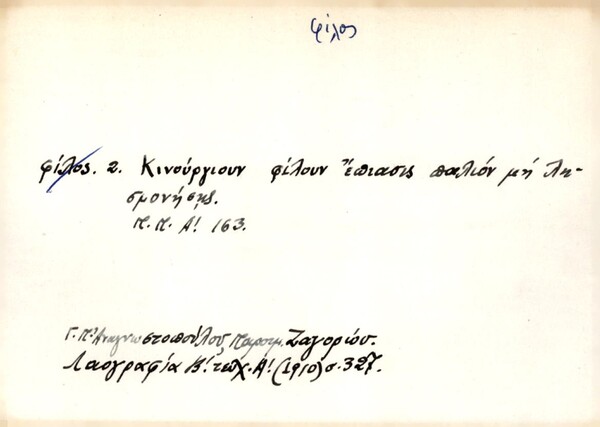 φίλος
φίλος. 2. Κινούργιουν φίλουν ἔπιασις παλιόν μή λη-
σμονήσῃς.
Π.Π. Α! 163.
Γ. Π. Ἀναγνωστοπούλου, Παροιμ. Ζαγορίου.
Λαογραφία Β! τευχ. Α! (1910) σ. 327.